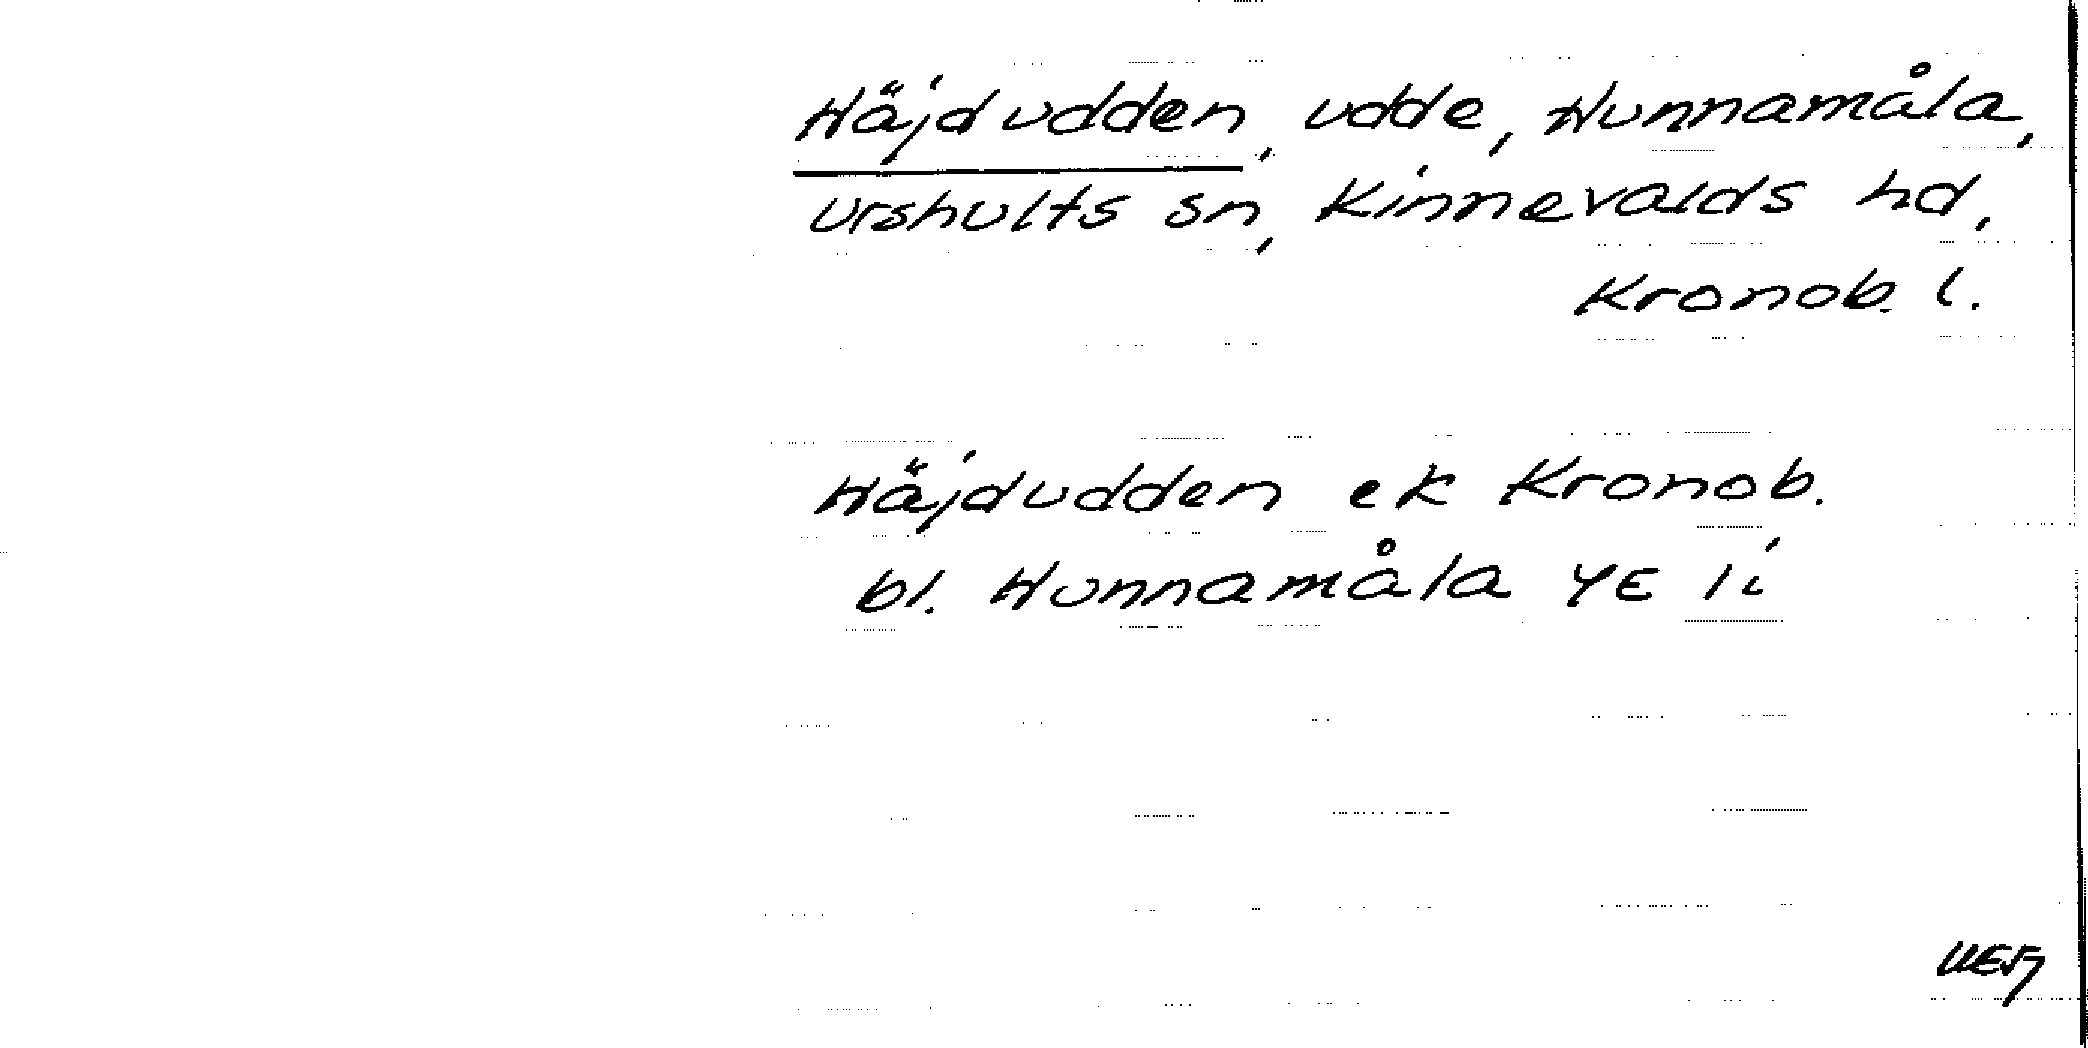 Häjdudden, udde, Hunnamåla,
Urshults sn, Kinnevalds hd,
Kronob. l.
Häjdudden ek Kronob.
bl. Hunnamåla 4E 1i